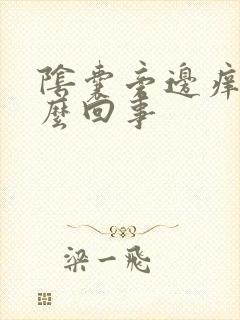 陰囊旁邊痒
麼回事
梁一飛